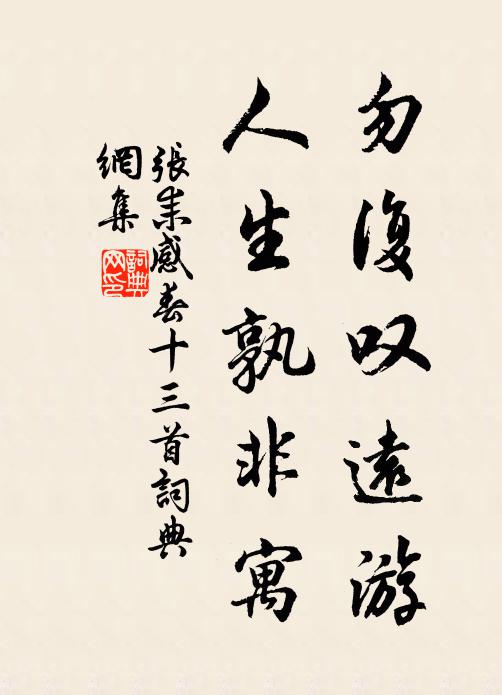 勿復叹遠游
人生孰非寓
張耒感春十三首詞典
網集
詞典網印